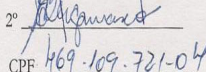 2º
CPF 469.109.721-04